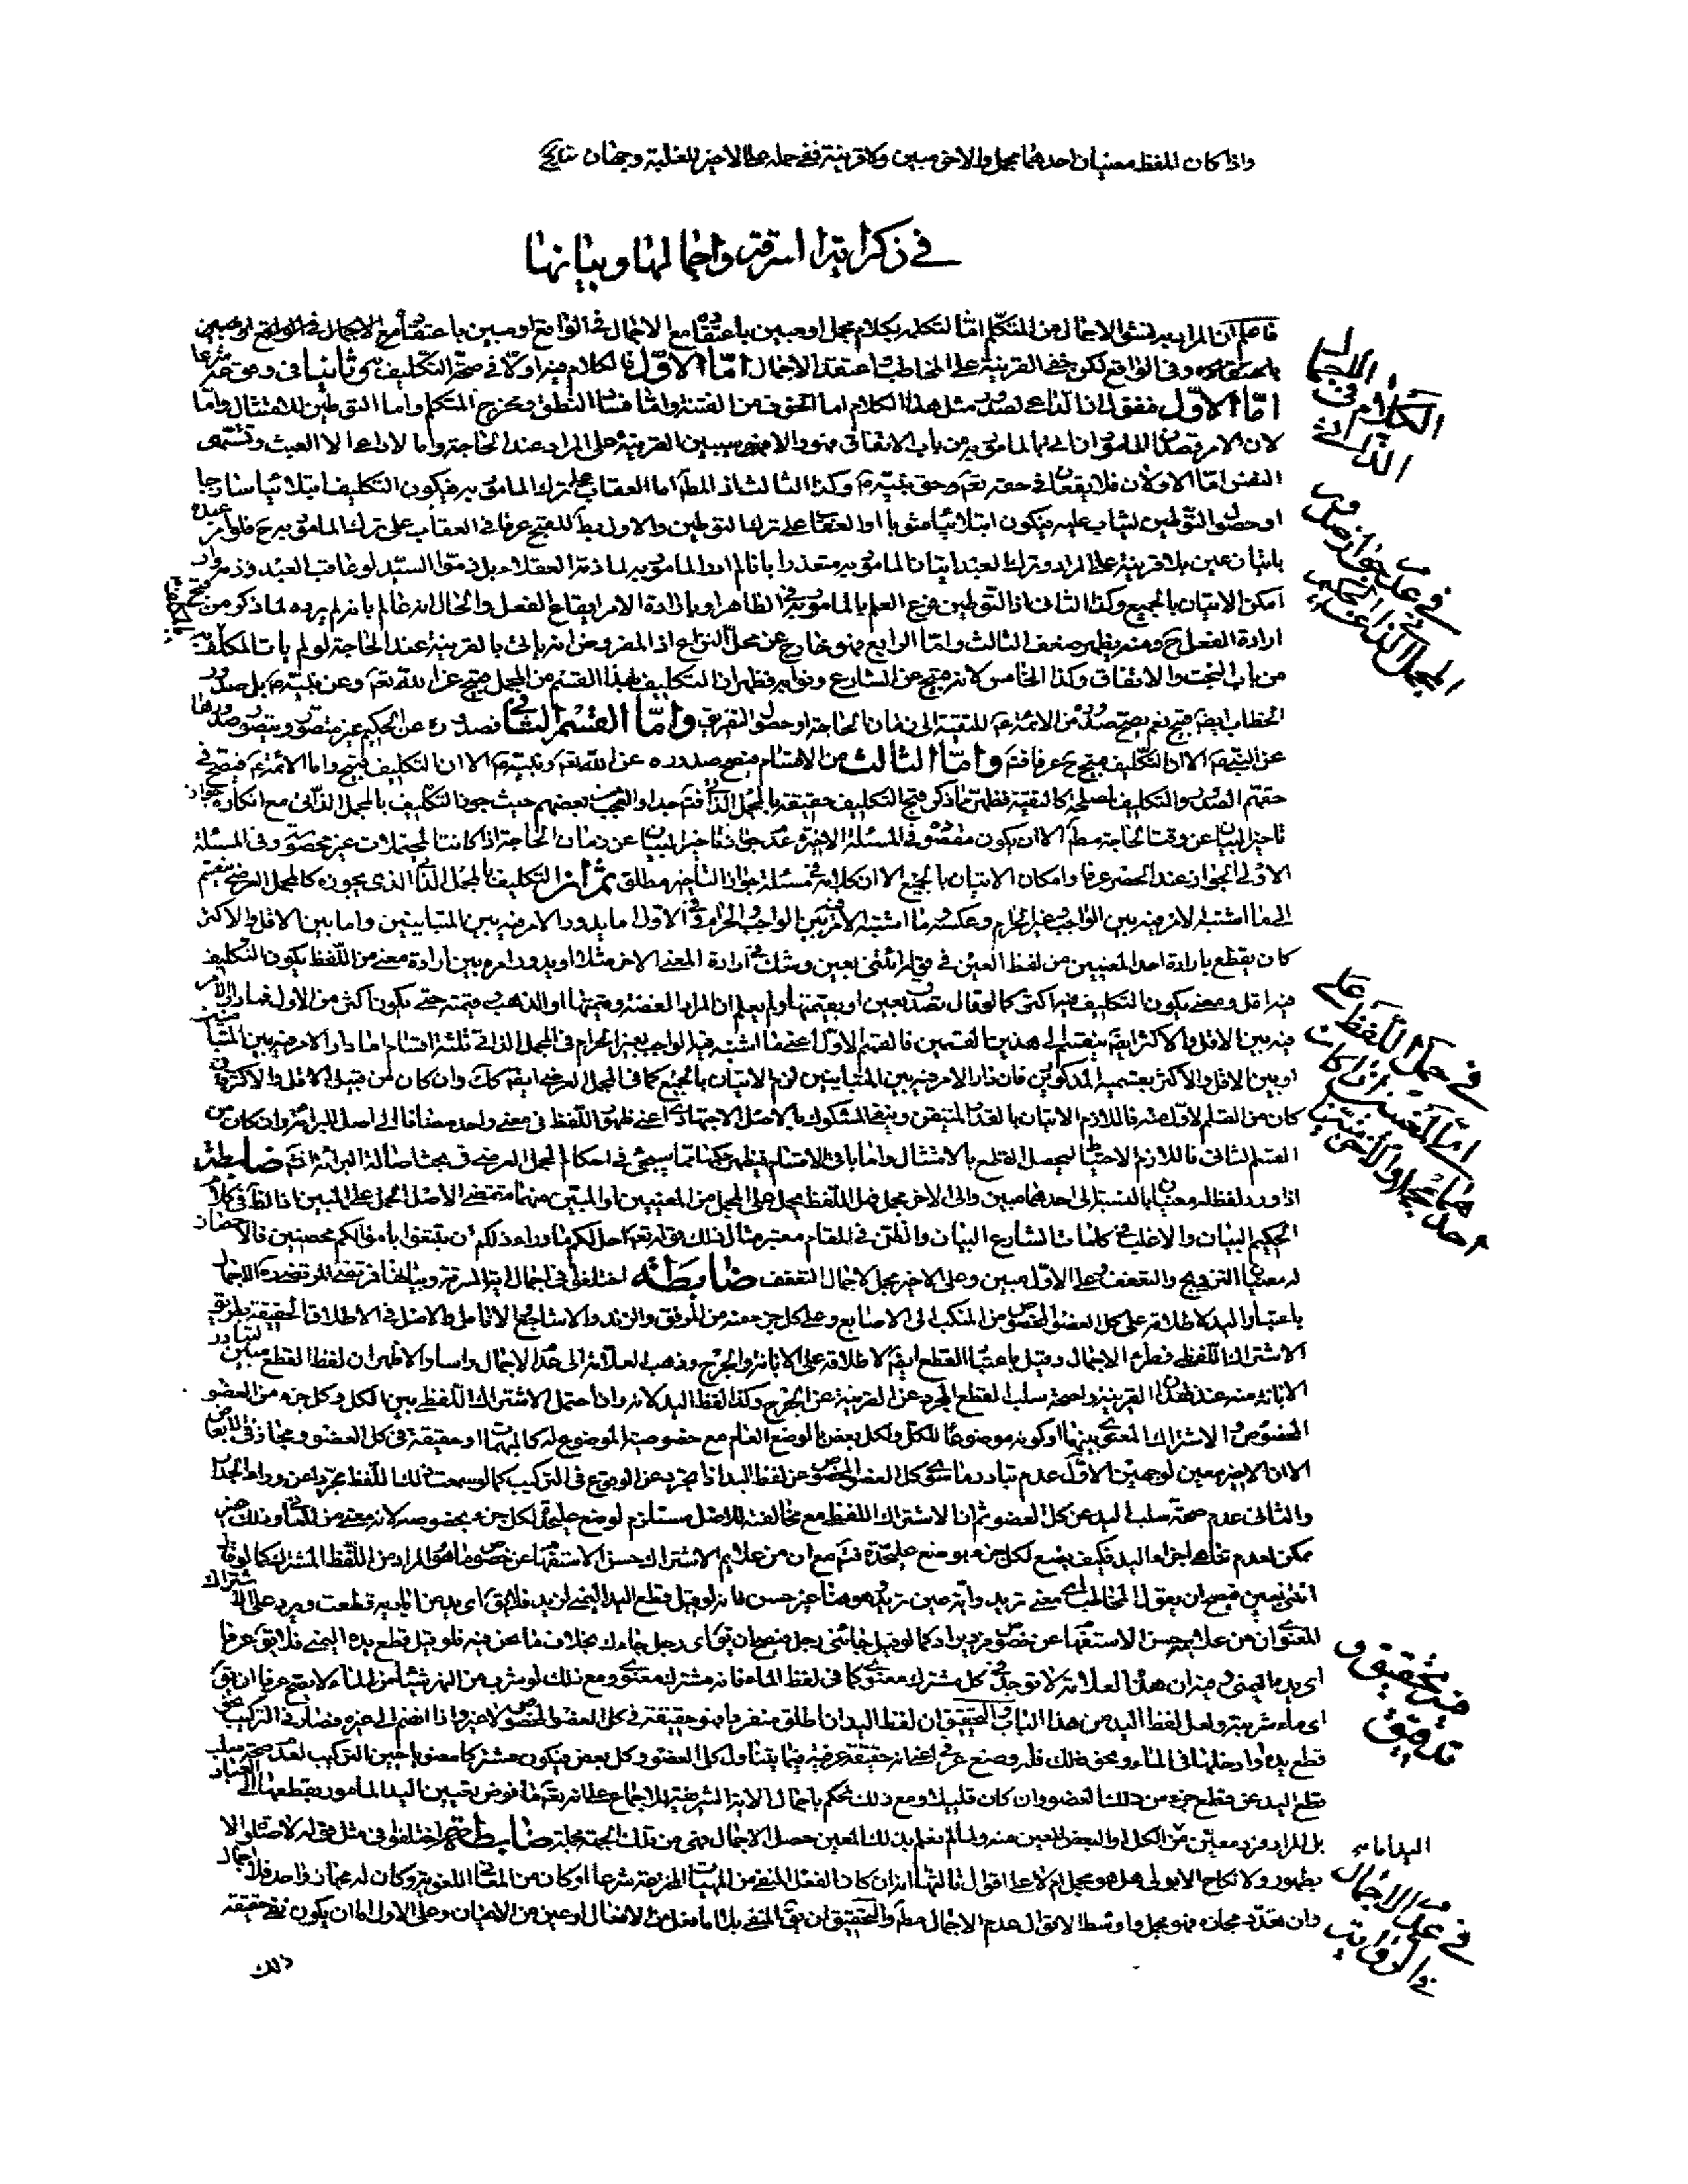 واذا كان للفظ معنيان احدهما مجمل والاخر مبين ولا قرينة ففى حمله على الاخير للغلبة وجهان نتايج
فى ذكر اية السرقة واجمالها وبيانها
فاعلم ان المراد من المتكلم اما لتكلمه بكلام مجمل او مبين باعتقاده مع الاجمال فى الواقع او مبين باعتقاده مع الاجمال فى الواقع او مبين
باعتقاده وفى الواقع لكن خفى القرينة على المخاطب فاعتقد الاجمال امّا الاوّل فالكلام فيه اولا فى صحة التكليف به وثانيا فى وقوعه شرعا
امّا الاوّل فنقول ان الداعى لصدور مثل هذا الكلام اما الخوف من الفتنة واما النطق ومخرج المتكلم واما التوطين للامتثال واما
لان الامر قصد المامور من باب الاتفاق فهو والا فهو سيبين القرينة على المراد عند الحاجة واما لا داعى الا العبث وتشهى
النفس امّا الاولان فلا يقعان فى حقه تعم وحق نبيه وكذا الثالث اذ المط اما العقاب على ترك المامور به فيكون التكليف ابتلائيا ساذجا
او حصول التوطين ليثاب عليه فيكون ابتلائيا مشوبا او العقاب على ترك التوطين والاول بط للقبح عرفا فى العقاب على ترك المامور به ح فلو امر عبده
باتيان عين بلا قرينة على المراد وترك العبد اتيان المامور به معتذرا بانا لم اراد المامور به لما ذمه العقلاء بل ذموا السيد لو عاقب العبد وذمه وان
امكن الاتيان بالجميع وكذا الثانى اذ التوطين فرع العلم بالمامور به فى الظاهر او بارادة الامر ايقاع الفعل والحال انه عالم بانه لم يرده لما ذكر من قبح
ارادة الفعل ح ومنه يظهر ضعف الثالث واما الرابع فهو خارج عن محل النزاع اذ المفروض انه ياتى بالقرينة عند الحاجة لو لم يات المكلف
من باب البخت والاتفاق وكذا الخامس لانه قبيح عن الشارع ونوابه فظهر ان التكليف بهذا القسم من المجمل قبيح عن الله تعم وعن نبيه بل صدور
الخطاب ايضا قبيح نعم يصح صدوره من الائمة للتقية الى زمان الحاجة او حصول التفريق وامّا القسم الثانى فصدوره عن الحكيم غير متصور ويتصور صدورها
عن النبى الا ان التكليف قبيح ح عرفا فتم وامّا الثالث من الاقسام فيصح صدوره عن الله تعم ونبيه الا ان التكليف قبيح واما الائمة فيصح فى
حقهم الصدور والتكليف لمصلحة كالتقية فظهر مما ذكر قبح التكليف حقيقة بالمجمل الذاتى فتم جدا والعجب من بعضهم حيث جوز التكليف بالمجمل الذاتى مع انكاره جواز
تاخير البيان عن وقت الحاجة مط الا ان يكون مقصوده فى المسئلة الاخيرة عدم جواز تاخير البيان عن زمان الحاجة اذا كانت المحتملات غير محصورة وفى المسئلة
الاولى الجواز عند الحصر عرفا وامكان الاتيان بالجميع الا ان كلامه فى مسئلة جواز التاخير مطلق ثم ان التكليف بالمجمل الذاتى الذى يجوزه كالمجمل العرضى ينقسم
الى ما اشتبه الامر فيه بين الواجب وغير الحرام وعكسه وما اشتبه الامر فيه بين الواجب والحرام وفى الاول اما يدور الامر فيه بين المتباينين واما بين الاقل والاكثر
كان يقطع بارادة احد المعنيين من لفظ العين فى قوله ائتنى بعين ويشك فى ارادة المعنى الاخر مثلا او يدور امره بين ارادة معنى من اللفظ يكون التكليف
فيه اقل ومعنى يكون التكليف فيه اكثر كما لو قال تصدق بعين او بقيمتها ولم يعلم ان المراد الفضة وقيمتها او الذهب وقيمته حتى يكون اكثر من الاول
فيه بين الاقل والاكثر ايضا ينقسم الى هذين القسمين فالقسم الاول اعنى ما اشتبه فيه الواجب بغير الحرام فى المجمل الذاتى ثلثة اقسام اما دار الامر فيه بين المتباينين
او بين الاقل والاكثر بقسميه المذكورين فان دار الامر فيه بين المتباينين لزم الاتيان بالجميع كما فى المجمل العرضى ايضا كك وان كان من قبيل الاقل والاكثر
كان من القسم الاول منه فاللازم الاتيان بالقدر المتيقن وينفى المشكوك بالاصل الاجتهادى اعنى ظهور اللفظ فى معنى واحد مضافا الى اصل البرائة وان كان من
القسم الثانى فاللازم الاحتياط ليحصل القطع بالامتثال واما باقى الاقسام فيظهر حكمها مما سيجئ فى احكام المجمل العرضى فى بحث اصالة البرائة انتم ضابطة
اذا ورد لفظ له معنيان بالنسبة الى احدهما مبين والى الاخر مجمل فهل اللفظ يحمل على المجمل من المعنيين او المبين منهما مقتضى الاصل الحمل على المبين اذ الظ فى كلام
الحكيم البيان والاغلب فى كلمات الشارع البيان والظن فى المقام معتبر مثال ذلك قوله تعم احل لكم ما وراء ذلكم ان تبتغوا باموالكم محصنين فالاحصان
له معنيان التزويج والتعفف فعلى الاول مبين وعلى الاخير مجمل لاجمال التعفف ضابطة اختلفوا فى اجمال اية السرقة وبيانها فرتضى المرتضى ره الاجمال
باعتبار اليد لاطلاقه على كل العضو المخصوص من المنكب الى الاصابع وعلى كل جزء منه من المرفق والزند والاشاجع والانامل والاصل فى الاطلاق الحقيقة بطريق
الاشتراك اللفظى فطرء الاجمال وقيل باعتبار القطع ايضا لاطلاقه على الابانة والجرح وذهب العلامة الى عدم الاجمال راسا والاظهر ان لفظ القطع مبين لتبادر
الابانة منه عند فقدان القرينة ولصحة سلب القطع المجرد عن القرينة عن الجرح وكذا لفظ اليد لانه وان احتمل الاشتراك اللفظى بين الكل وكل جزء من العضو
المخصوص والاشتراك المعنوى بينهما وكونه موضوعا للكل ولكل بعض بالوضع العام مع خصوصية الموضوع له كالمبهمات او حقيقة فى كل العضو ومجاز فى الابعاض
الا ان الاخير معين لوجهين الاول عدم تبادر ما سوى كل العضو المخصوص عن لفظ اليد اذا تجرد عن الوقوع فى التركيب كما لو سمعت ذلك اللفظ مجردا عن وراء الجدار
والثانى عدم صحة سلب اليد عن كل العضو ثم ان الاشتراك اللفظى مع مخالفته للاصل مستلزم لوضع عليحدة لكل جزء بخصوصه لانه معنى من المعانى وذلك غير
ممكن لعدم تناهى اجزاء اليد فكيف يضع لكل جزء بوضع عليحدة فتم مع ان من علايم الاشتراك حسن الاستفهام عن خصوص ما هو المراد من اللفظ المشترك كما لو قال
ائتنى بعين فيصح ان يقول المخاطب اى معنى تريد واية عين تريد وهو هنا غير حسن فانه لو قيل قطع اليد اليمنى لزيد فلا يق اى يد من اياديه قطعت ويرد على الاشتراك
المعنوى ان من علايمه حسن الاستفهام عن خصوص فرد يراد كما لو قيل جائنى رجل فيصح ان يق اى رجل جاءك بخلاف ما نحن فيه فلو قيل قطع يده اليمنى فلا يق عرفا
اى يده اليمنى وفيه ان هذا العلامة لا توجد فى كل مشترك معنوى كما فى لفظ الماء فانه مشترك معنوى ومع ذلك لو شرب من النهر شيئا من الماء لا يصح عرفا ان يق
اى ماء شربته ولعل لفظ اليد من هذا الباب والتحقيق ان لفظ اليد ان اطلق منفردا فهو حقيقة فى كل العضو المخصوص لا غير واذا انضم الى غيره فصار فى التركيب نحو
قطع يده وادخلها فى الماء ونحو ذلك فله وضع عرفى اعنى انه حقيقة عرفية فيما يتناول كل العضو وكل بعض فيكون مشتركا معنويا حين التركيب لعدم صحة سلب
قطع اليد عن قطع جزء من ذلك العضو وان كان قليلا ومع ذلك نحكم باجمال الاية الشريفة للاجماع على انه تعم ما فوض تعيين اليد المامور بقطعها الى العباد
بل المراد فرد معين من الكل او البعض المعين منه ولما لم نعلم بذلك المعين حصل الاجمال فهى من تلك الجهة مجملة ضابطة اختلفوا فى مثل قوله لا صلوة الا
بطهور ولا نكاح الا بولى هل هو مجمل ام لا على اقوال ثالثها ان كان الفعل المنفى من المهيات المخترعة شرعا او كان من المعانى اللغوية وكان له مجاز واحد فلا اجمال
وان تعدد مجازه فهو مجمل واوسط الاقوال عدم الاجمال مط والتحقيق ان يق المنفى بلا اما فعل من الافعال او عين من الاعيان وعلى الاول اما ان يكون نفى حقيقة
ذلك
الكلام فى الاجمال
الذاتى
فى عدم جواز صدور
المجمل الذاتى عن الحكيم
فى حمل اللفظ على
احدهما مجمل والاخر مبين
فيه تحقيق و
تدقيق
فى عدم الاجمال